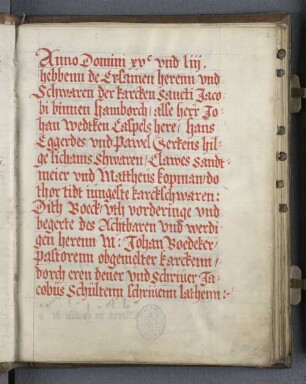 Anno Domini xvᶜ vnd Liij.
hebbenn de Ersamen herenn vnd
Schwaren der karcken Sancti Jaco-
bi binnen Hamborch/ alse herr Jo
han Wedtken Caspels here/ Hans
Eggerdes vnd Pawel Gerkens hil-
ge lichams shwaren/ Clawes Sandt
meier vnd Mattheus kopman/ do
thor tidt inngelte karckschwaren:
Dith Boeck/ vth vorderinge vnd
begerte des Achtbaren vnd werdi
gen herenn M: Johan Boedeker/
Pastorenn obgemelter karckenn/
dorch eren dener vnd Schriuer Ja-
cobus Schültenn schriuenn lathenn:-